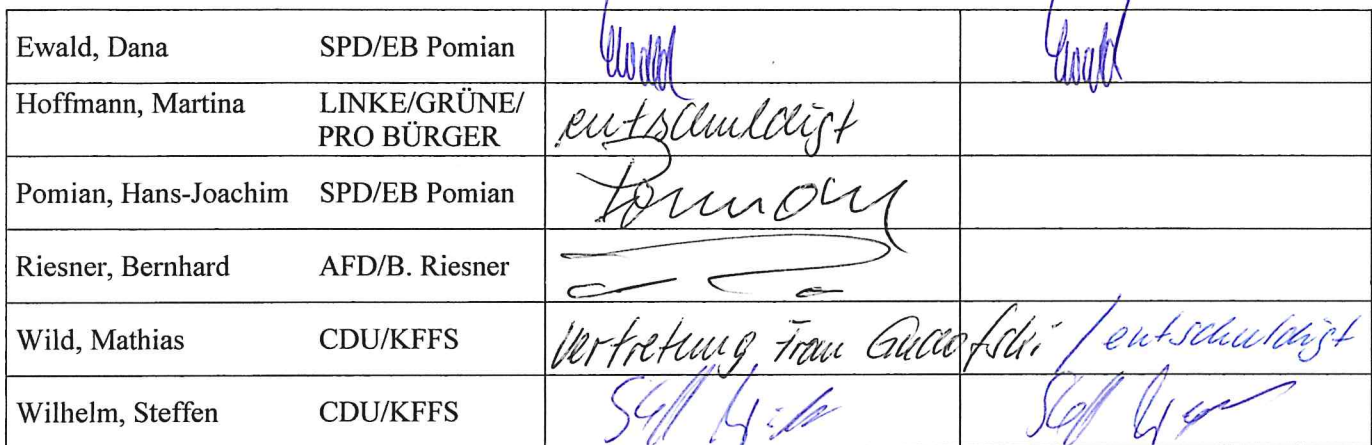 Ewald, Dana SPD/EB Pomian Ewald Ewald
Hoffmann, Martina LINKE/GRÜNE/ entschuldigt
PRO BÜRGER
Pomian, Hans-Joachim SPD/EB Pomian Pomian
Riesner, Bernhard AFD/B. Riesner
Wild, Mathias CDU/KFFS Vertretung Frau / entschuldigt
Wilhelm, Steffen CDU/KFFS